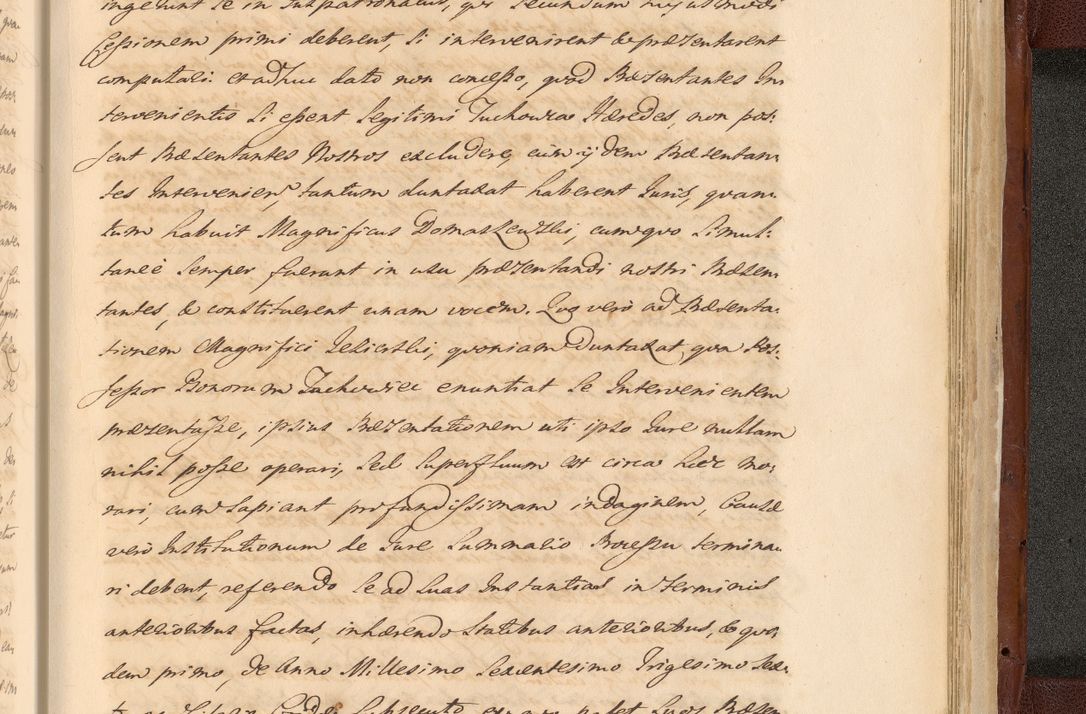 ingerunt se in Juspatronatus, qui secundum hujusmodi
Cessionem primi deberent, si intervenirent & præsentarent
computari: et adhuc dato non concesso, quod Præsentantes In
tervenientis si essent legitimi Tuchowiæ Hæredes, non pos:
sent Præsentantes Nostros excludere, cum ijdem Præsentan:
tes Intervenien, tantum duntaxat haberent Juris, quan:
tum habuit Magnificus Domaszewski, cum quo simul:
taneè semper fuerunt in usu præsentandi nostri Præsen:
tantes, & constituerent unam vocem. Quo verò ad Præsenta:
tionem Magnifici Jelicski, quoniam duntaxat qua Pos:
sessor Bonorum Tuchowiec enuntiat se Intervenientem
præsentasse, ipsius Præsentationem uti ipso Jure nullam
nihil posse operari, sed superfluum est circa hæc mo:
rari, cum sapiant profundissimam indaginem, Causæ
verò Institutionum de Jure summario Processu termina:
ri debent, referendo se ad suas Instantias in Terminis
anterioribus factas, inhærendo Statibus anterioribus, & qui:
dem primo, de Anno Millesimo Sexcentesimo Trigesimo Sex: